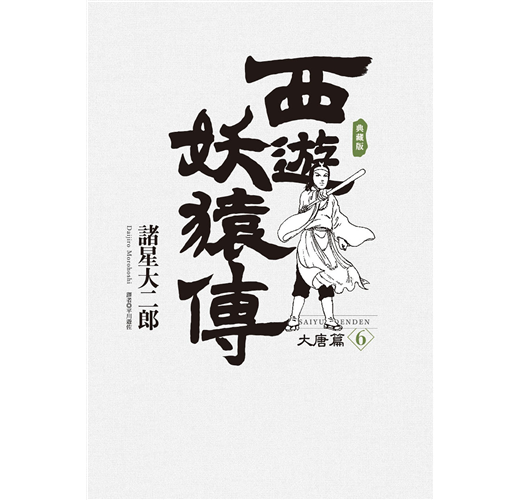 西遊
妖猿傳
典藏版
諸星大二郎
Daijiro Morohoshi
譯者◎平川遊佐
SAIYU
DENDEN
大唐篇
6